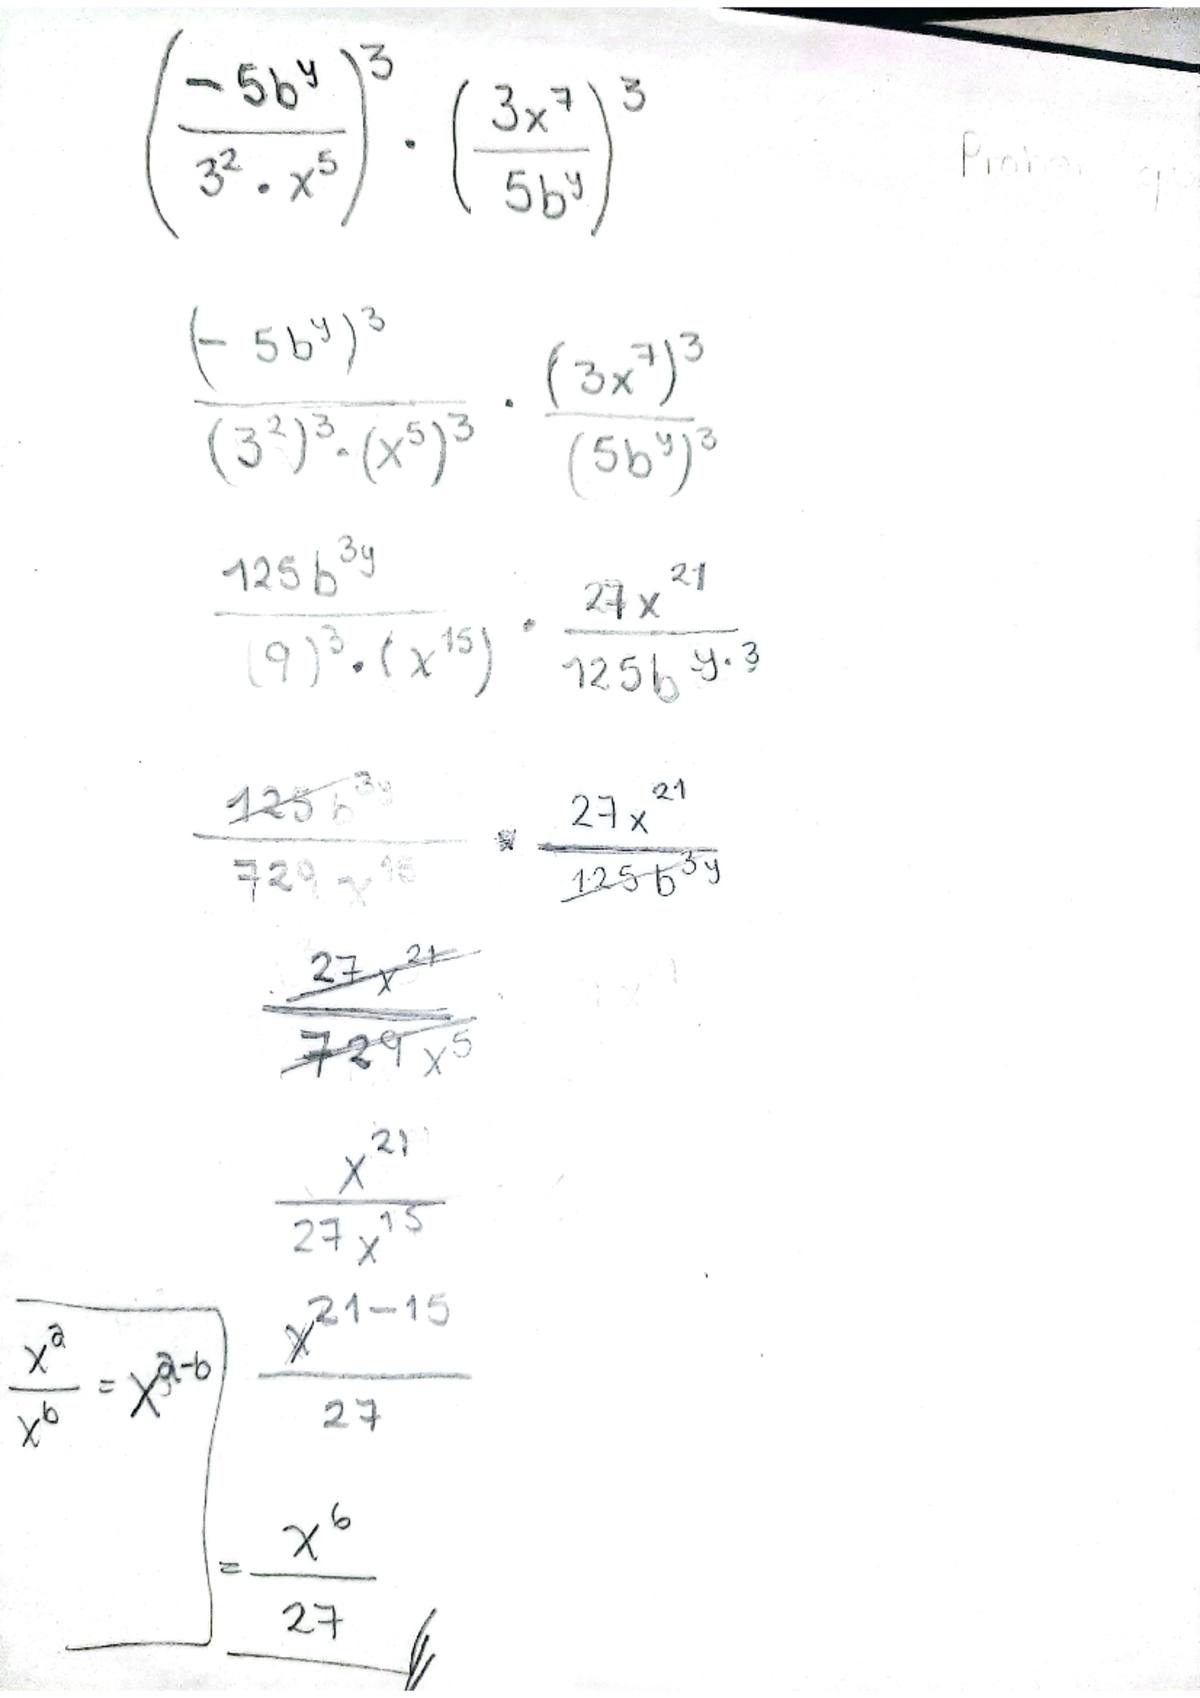 (-5b^y / 3^2 · x^5)^3 · (3x^7 / 5b^y)^3
(-5b^y)^3 / (3^2)^3 · (x^5)^3 · (3x^7)^3 / (5b^y)^3
125b^3y / (9)^3 · (x^15) · 27x^21 / 125b^y·3
125b^3y / 729x^15 · 27x^21 / 125b^3y
27x^21 / 729x^5
x^21 / 27x^15
x^21-15 / 27
x^a / x^b = x^a-b
= x^6 / 27